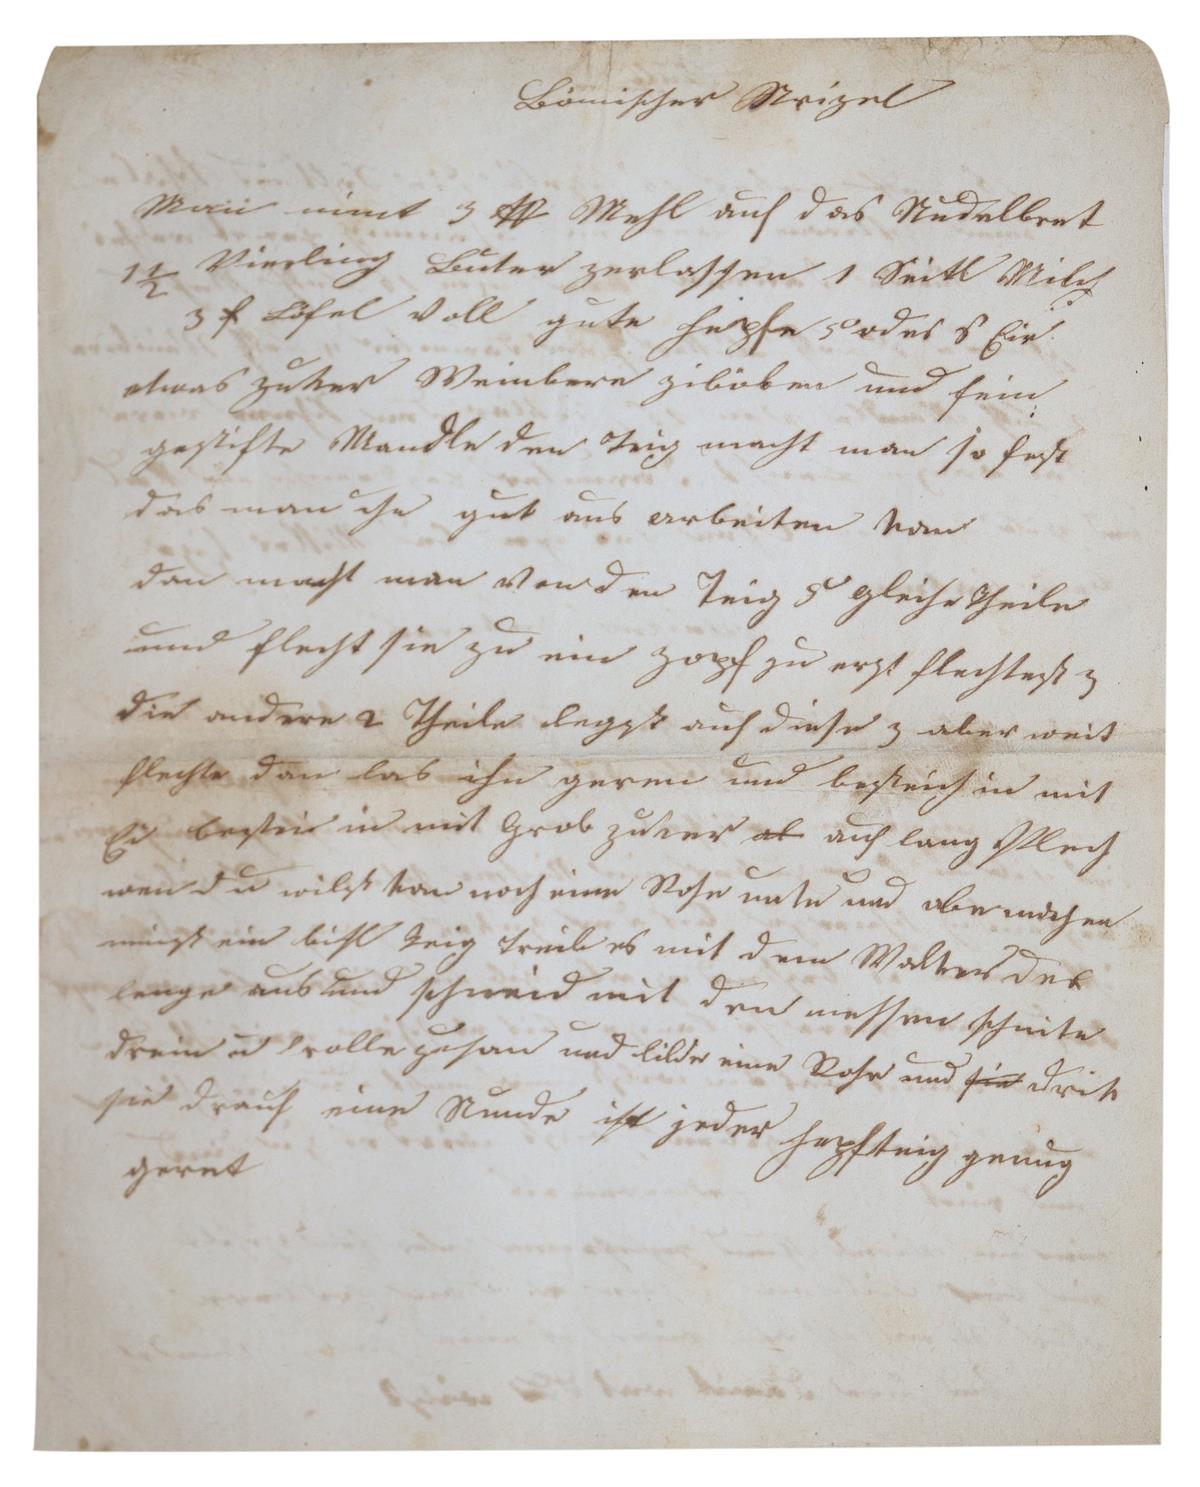 Bömischer Strizel
Man nimt 3 ℔ Mehl auf das Nudelbret
1 1/2 Vierling Buter zerlassen 1 Seitl Milch
3 Löfel voll gute hepfe 5 odes 8 Eir
etwas zuker Weinbere ziböben und fein
gestifte Mandle den Teig macht man so fest
das man ihn gut aus arbeiten kan
dan macht man von den Teig 5 gleihe Theile
und flecht sie zu ein zopf zu erst flechtest 3
die andere 2 Theile legst auf diese 3 aber weit
flechte dan las ihn geren und besteich in mit
Ei bestrei in mit Grob zuker auf lang Plech
wen du wilst kan noch eine Rose unte und obe machen
nimst ein bisl Teig treib es mit dem Walker der
lenge aus und schneid mit den messen schnite
drein u rolle zusan und bilde eine Rose und sie drik
sie drauf eine Stunde ist jeder hepfteig genug
geret